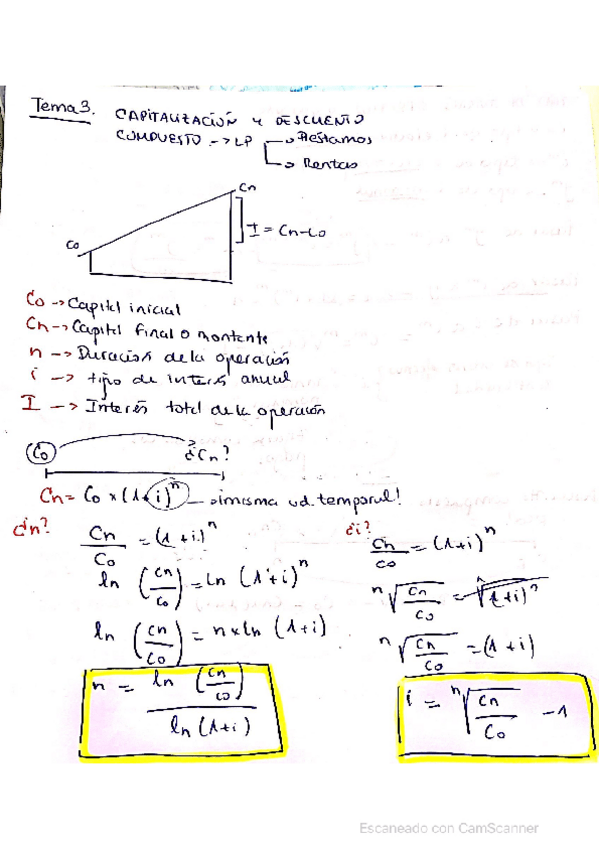 Tema 3. CAPITALIZACIÓN Y DESCUENTO
COMPUESTO -> LP -> Préstamos
-> Rentas
Cn
Co
I = Cn-Co
Co -> Capital inicial
Cn -> Capital final o montante
n -> Duración de la operación
i -> tipo de interés anual
I -> Interés total de la operación
Co ¿Cn?
Cn = Co x (1+i)^n -> ¡misma ud. temporal!
¿n? Cn/Co = (1+i)^n
ln (Cn/Co) = ln (1+i)^n
ln (Cn/Co) = n x ln (1+i)
n = ln (Cn/Co) / ln (1+i)
¿i? Cn/Co = (1+i)^n
n√(Cn/Co) = n√(1+i)^n
n√(Cn/Co) = (1+i)
i = n√(Cn/Co) - 1
Escaneado con CamScanner